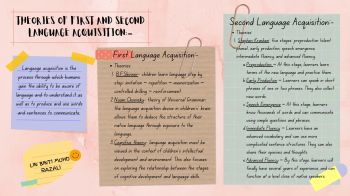 THEORIES OF FIRST AND SECOND
LANGUAGE ACQUISITION:-
Language acquisition is the
process through which humans
gain the ability to be aware of
language and to understand it as
well as to produce and use words
and sentences to communicate.
First Language Acquisition:-
Theories
1. B.F Skinner- children learn language step by
step: imitation – repetition – memorization –
controlled drilling – reinforcement
2. Noam Chomsky- theory of Universal Grammar:
the language acquisition device in children's brain
allows them to deduce the structure of their
native language through exposure to the
language.
3. Cognitive theory- language acquisition must be
viewed in the context of children's intellectual
development and environment. This also focuses
on exploring the relationship between the stages
of cognitive development and language skills.
Second Language Acquisition:-
Theories
1. Stephen Krashen- five stages: preproduction (silent
phase), early production, speech emergence,
intermediate fluency and advanced fluency.
a. Preproduction – At this stage, learners learn
terms of the new language and practise them.
b. Early Production – Learners can speak in short
phrases of one or two phrases. They also collect
new words.
c. Speech Emergence – At this stage, learners
know thousands of words and can communicate
using simple questions and phrases.
d. Intermediate Fluency – Learners have an
advanced vocabulary and can use more
complicated sentence structures. They can also
share their opinions and thoughts.
e. Advanced Fluency – By this stage, learners will
finally have several years of experience and can
function at a level close to native speakers.
MOHD
RAZALI